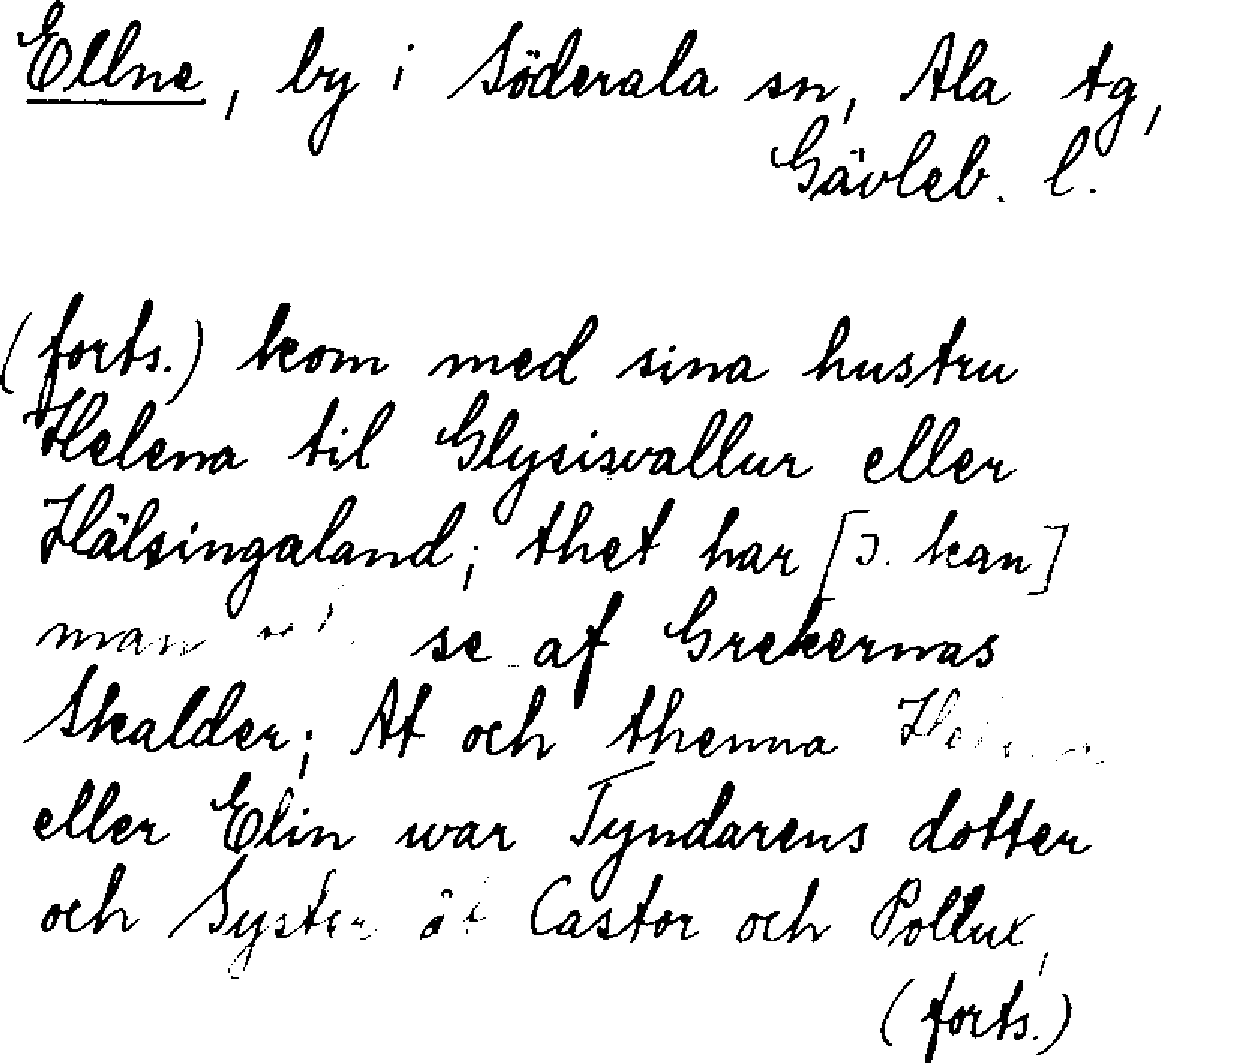 Ellne, by i Söderala sn, Ala tg,
Gävleb. l.
(forts.) kom med sina hustru
Helena til Glysisvallur eller
Hälsingaland; thet har [ɔ. kan]
man se af Grekernas
Skalder; At och thenna
eller Elin war Tyndarens dotter
och Syster åt Castor och Pollux,
(forts.)